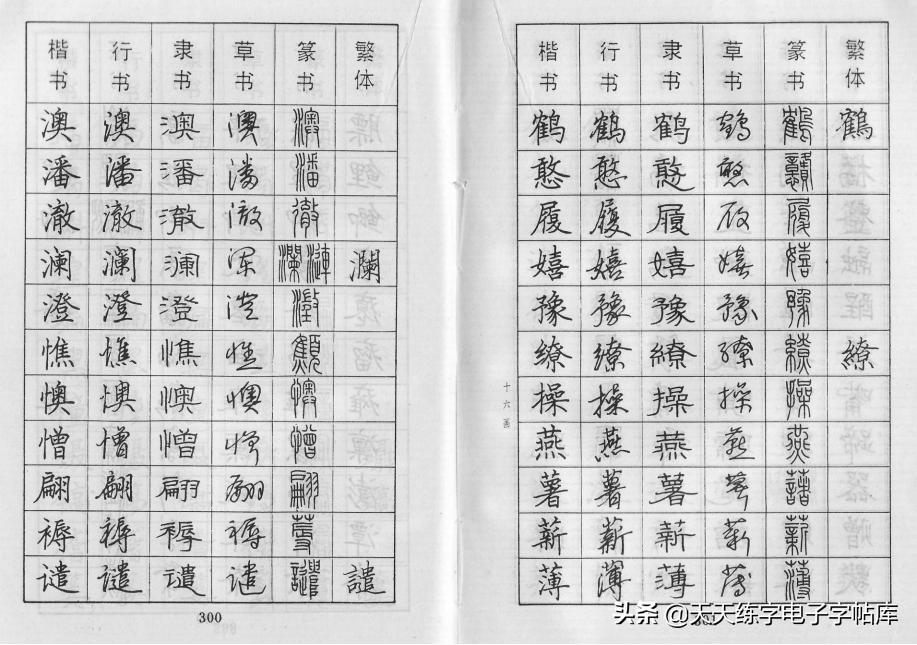 楷书 行书 隶书 草书 篆书 繁体
澳 澳 澳 澳 澳
潘 潘 潘 潘 潘
澈 澈 澈 澈 澈
澜 澜 澜 澜 瀾 漣 瀾
澄 澄 澄 澄 澂
憔 憔 憔 憔 顦
懊 懊 懊 懊 懊
憎 憎 憎 憎 憎
翩 翩 翩 翩 翩
褥 褥 褥 褥 蓐
谴 谴 谴 谴 譴 譴
300
楷书 行书 隶书 草书 篆书 繁体
鹤 鹤 鹤 鹤 鶴 鶴
憨 憨 憨 憨
履 履 履 履 履
嬉 嬉 嬉 嬉 嬉
豫 豫 豫 豫 豫
缭 缭 繚 缭 繚 繚
操 操 操 操 操
燕 燕 燕 燕 燕
薯 薯 薯 薯
薪 薪 薪 薪 薪
薄 薄 薄 薄 薄
十六画
头条 @天天练字电子字帖库